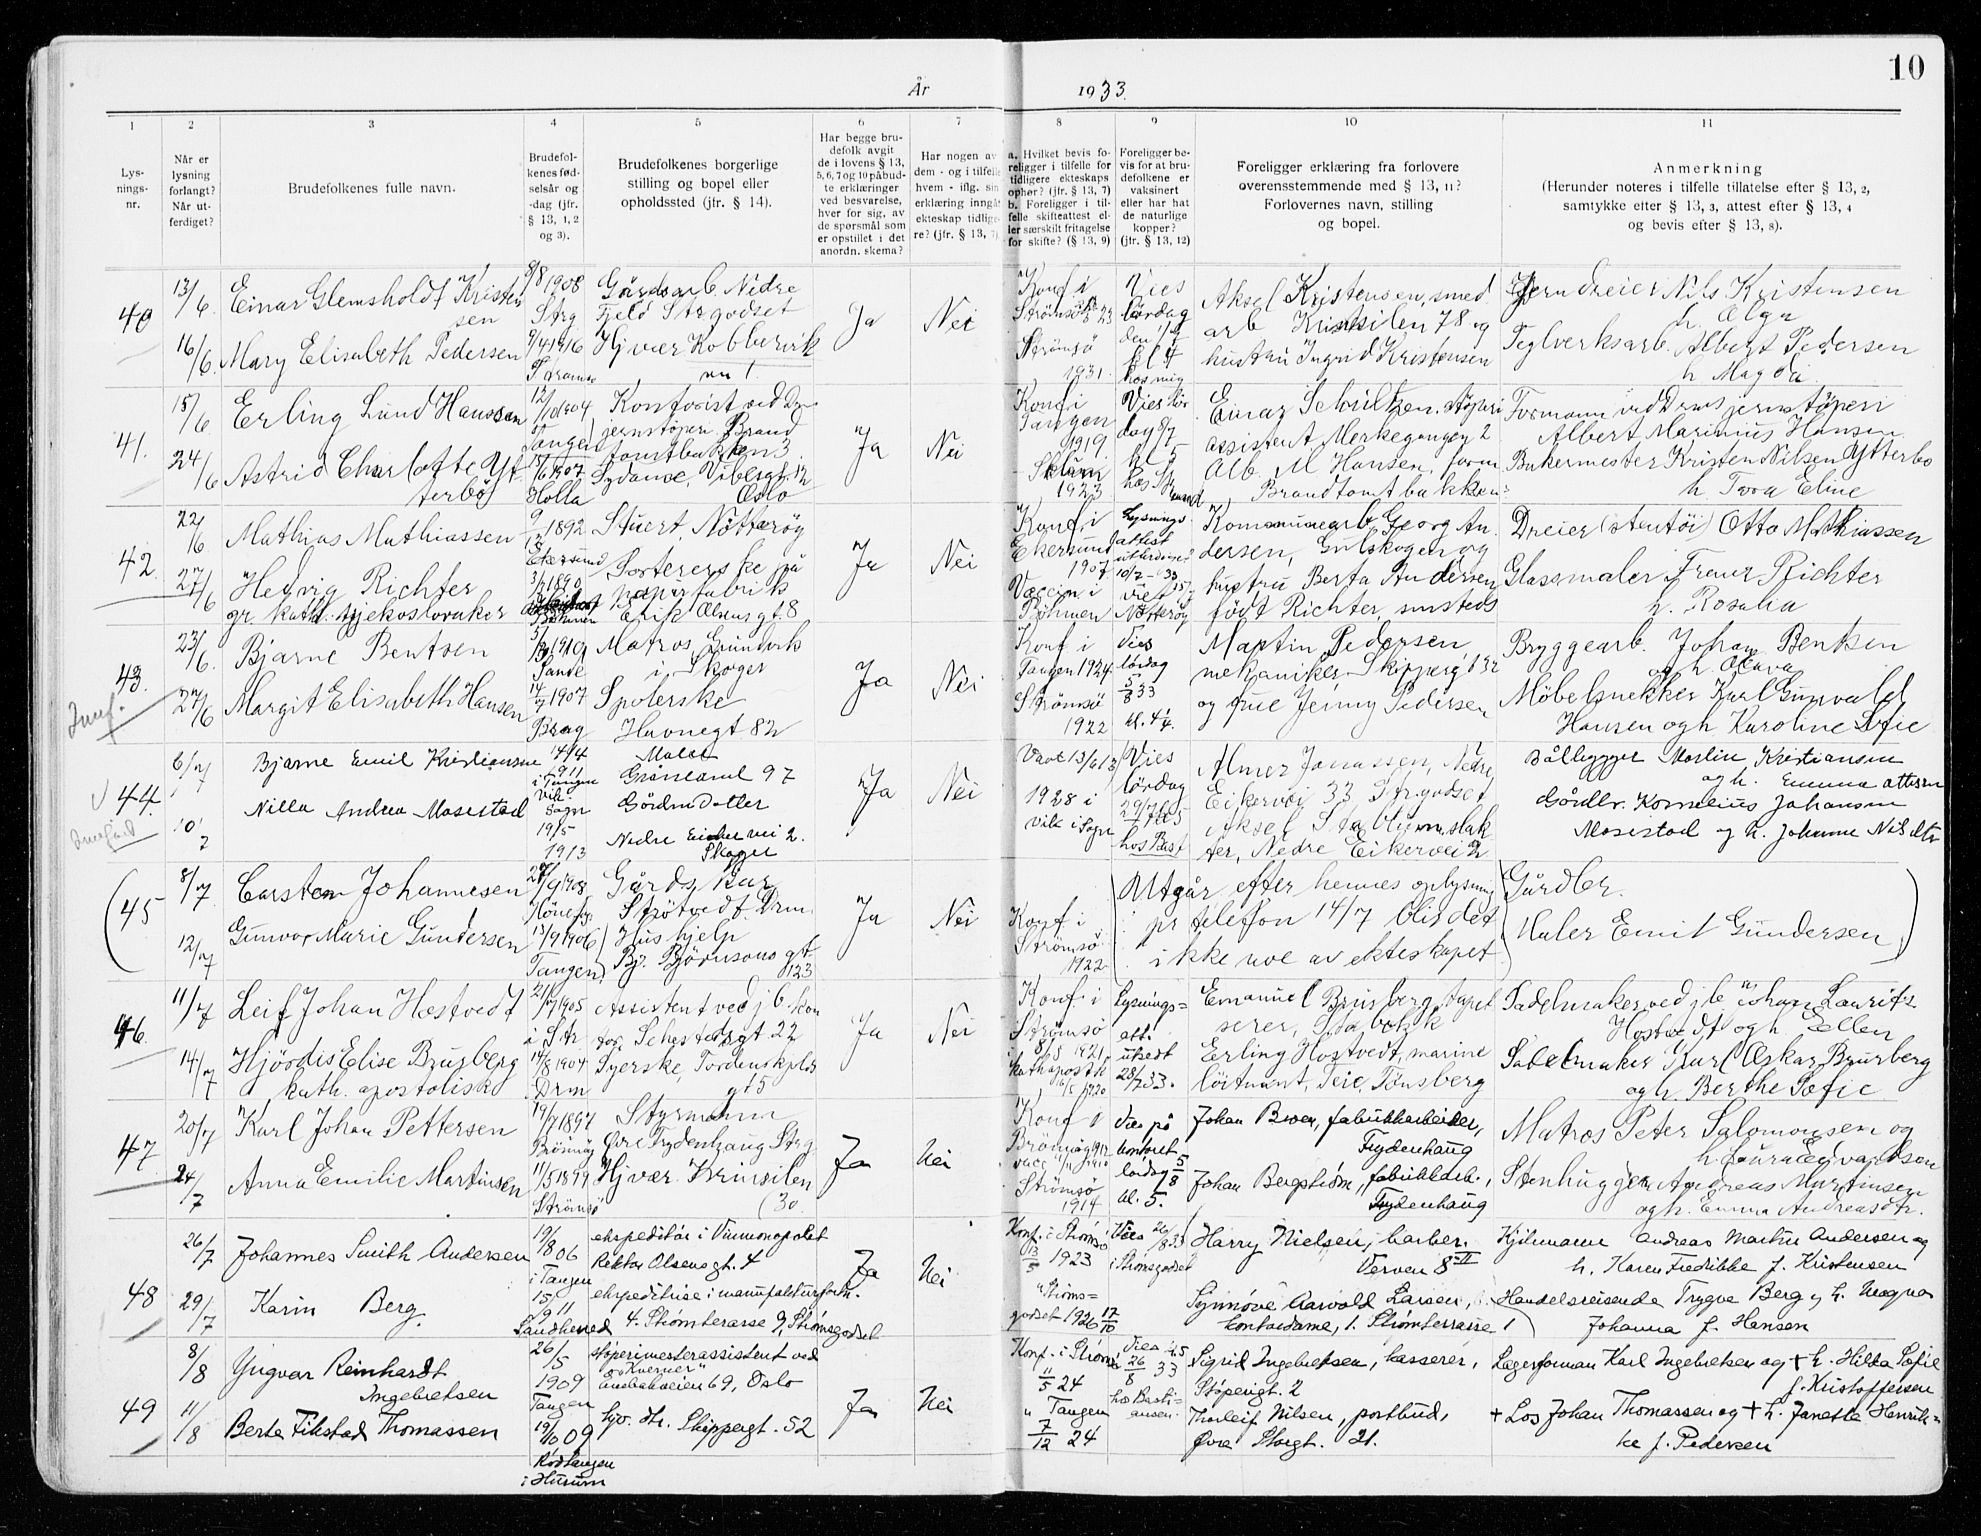 10
År 1933.
1 2 3 4 5 6 7 8 9 10 11
Lys-
nings-
nr.
Når er
lysning
forlangt?
Når ut-
ferdiget?
Brudefolkenes fulle navn.
Brudefol-
kenes fød-
selsår og
-dag (jfr.
§ 13, 1, 2
og 3).
Brudefolkenes borgerlige
stilling og bopel eller
opholdssted (jfr. § 14).
Har begge bru-
defolk avgit
de i lovens § 13,
5, 6, 7 og 10 påbud-
te erklæringer
ved besvarelse,
hver for sig, av
de spørsmål som
er opstillet i det
anordn. skema?
Har nogen av
dem - og i tilfelle
hvem - iflg. sin
erklæring inngått
ekteskap tidlige-
re? (jfr. § 13, 7)
a. Hvilket bevis fo-
religger i tilfelle for
tidligere ekteskaps
ophør? (jfr. § 13, 7)
b. Foreligger i til-
felle skifteattest el-
ler særskilt fritagelse
for skifte? (§ 13, 9)
Foreligger be-
vis for at bru-
defolkene er
vaksinert
eller har hat
de naturlige
kopper?
(jfr. § 13, 12)
Foreligger erklæring fra forlovere
overensstemmende med § 13, 11?
Forlovernes navn, stilling
og bopel.
Anmerkning
(Herunder noteres i tilfelle tillatelse efter § 13, 2,
samtykke efter § 13, 3, attest efter § 13, 4
og bevis efter § 13, 8).
40
13/6.
16/6.
Einar Glemsholdt Kristen
sen
Mary Elisabeth Pedersen
9/8 1908
Strg
9/4 1916
Strømsø
Gårdsarb. Nedre
Fjeld Strgodset
Hjvær Kobbervik
nr 1.
Ja
Nei
Konf i
Strømsø 23
Strømsø
1931.
Vies
lördag
den 1/7
kl 4
hos mig
Aksel Kristensen, smed
arb Krinsilen 78 og
hustru Ingrid Kristensen
Jerndreier Nils Kristensen
h. Olga
Teglverksarb. Albert Pedersen
h Magda
41.
15/6
24/6
Erling Lund Hanssen
Astrid Charlotte Yt
terbög
12/10 1904
Tangen
/6 1907
Holla
Kontorist ved Drm
jernstöperi Brand
tomtbakken 3.
Sydame, Vibesgt. 12
Oslo
Ja
Nei
Konf i
Tangen
1919
1923
Vies lör
dag 8/7
kl 5
Einar Schultzen. Stöperi
assistent Merkegangen 2
Alb. M Hansen, form
Brandtomtbakken
Formann ved Drms jernstöperi
Albert Marinius Hansen
Bakermester Kristen Nilsen Ytterbö
h. Tora Eline
42
22/6
27/6
Mathias Mathiassen
Hedvig Richter
gr. kath. tsjekoslovaker
1892
Ekersund
1890
Böhmen
Stuert, Nötteröy
Sorterерske på
papirfabrik
Erik Olsens gt. 8
Ja
Nei
Konf i
Ekersund
1907
Vaccin i
Böhmen
Lysnings
attest
utferdiget
10/7 - 33
viet
Nötteröy
Kommunearb. Georg An
dersen, Gulskogen og
hustru Berta Andersen
födt Richter, smsteds
Dreier (stentöi) Otto Mathiassen
Glassmaler Franz Richter
h. Rosalia
43.
23/6.
27/6
Bjarne Bentsen
Margit Elisabeth Hansen
1910
Sande
14/7 1907
Brag
Matros, Grünvik
i Skoger
Spolerske
Havnegt 82
Ja
Nei
Konf i
Tangen 1924.
Strømsø
1922
Vies
lördag
5/8 33
kl. 4 1/4.
Martin Pedersen,
mekaniker, Skippergt 32
og frue Jenny Pedersen
Bryggearb. Johan Bentsen
og h. Olava
Möbelsnekker Karl Gunvald
Hansen og h Karoline Sofie
44.
6/7
10/7
Bjarne Emil Kristiansen
Nilla Andrea Mosestad
14/4
1911
i Tangen
Vik i
Sogn
19/5
1913
Maler
Grønland 97
Gårdmdotter
Nedre Eikervei 2.
Skoger
Ja
Nei
Vacc 13/6 13
1928 i
Vik i Sogn
Vies
lördag
29/7 kl 5
hos Bast
Almer Jonassen, Nedre
Eikervei 33 Strgodset
Aksel Stablum, slak
ter, Nedre Eikervei 2
Bålbygger Martin Kristiansen
og h. Emma Ottesen
Gårdbr. Kornelius Johansen
Mosestad og h. Johanne Nilsdtr
(45
8/7
12/7
Carsten Johannesen
Gunvor Marie Gundersen
2/9 1908
Hönefos
13/9 1906
Tangen
Gårdskar
Strötvedt Drm.
Hushjelp
Bj. Björnsons gt.
123
Ja
Nei
Konf i
Strømsø
1922
Utgår efter hennes oplysning
pr telefon 14/7 blir det
ikke noe av ekteskapet
Gårdbr.
Maler Emil Gundersen
46.
11/7
14/7
Leif Johan Hostvedt
Hjördis Elise Brusberg
kath. apostolisk
21/7 1905
i Str
14/8 1904
Drm
Assistent ved jb. kon
tor, Schestedsgt 22
Syerske, Tordenskjolds
gt 5
Ja
Nei
Konf i
Strømsø
8/5 1921,
i kath apostk
1920
Lysnings=
att.
utstedt
28/7 33.
Emanuel Brusberg, tapet
serer, Stabekk
Erling Hostvedt, marine
löitnant, Teie, Tönsberg
Sadelmaker ved jb. Johan Laurits
Hostvedt og h. Ellen
Sadelmaker Karl Oskar Brusberg
og h. Berthe Sofie
47
20/7
24/7
Karl Johan Pettersen
Anna Emilie Martinsen
19/7 1897
Brönnöy
11/5 1899
Strømsø
Styrmann
Øvre Frydenhaug Strg.
Hjvær. Krinsilen
(30.
Ja
Nei
Konf i
Brönnöy 1912
vacc 1910
Strømsø
1914
Vies på
kontoret
lørdag 5/8
kl. 5.
Johan Bwer, fabrikkarbeider,
Frydenhaug
Johan Bergström, fabrikkarb.,
Frydenhaug
Matros Peter Salomonsen og
h. Laura Edvardsen
Stenhugger Andreas Martinsen
og h. Emma Andreasdtr.
48
26/7
29/7
Johannes Smith Andersen
Karin Berg.
19/8 06
i Tangen
15/9 11
Sandherred
ekspeditør i Vinmonopolet
Rektor Olsens gt. 4
ekspeditrise i manufakturforr.
4. Strømterasse 9, Strømsgodset
Ja
Nei
Konf. i Strømsø
13/5 1923
" Strøms=
godset 1926 17/10
Vies 26/8 33
i Strømsgodset
Harry Nielsen, barber,
Verven 8 II
Synnöve Aarvold Larsen,
kontordame, 1. Strømterrasse 1
Kjölemann Andreas Martin Andersen og
h. Karen Fredrikke f. Kristensen
Handelsreisende Trygve Berg og h. Magna
Johanna f. Hansen
49
8/8
11/8
Yngvar Reinhardt
Ingebretsen
Berte Fikstad Thomassen
26/5
1909
Tangen
19/10 09
Rödtangen
i Hurum
støperimesterassistent ved
"Kværner"
69, Oslo
hjv. Str. Skippergt. 52
Ja
Nei
Konf. i Strømsø
11/5 24
" Tangen
7/12 24
Vies kl 5
26/8 33
hos Basti=
ansen.
Sigrid Ingebretsen, kasserer,
Støperigt. 2
Thorleif Nilsen, postbud,
Øvre Storgt. 21.
Lagerformann Karl Ingebretsen og + h. Hilda Sofie
f. Kristoffersen
+ Los Johan Thomassen og + h. Janette Henrik=
ke f. Pedersen